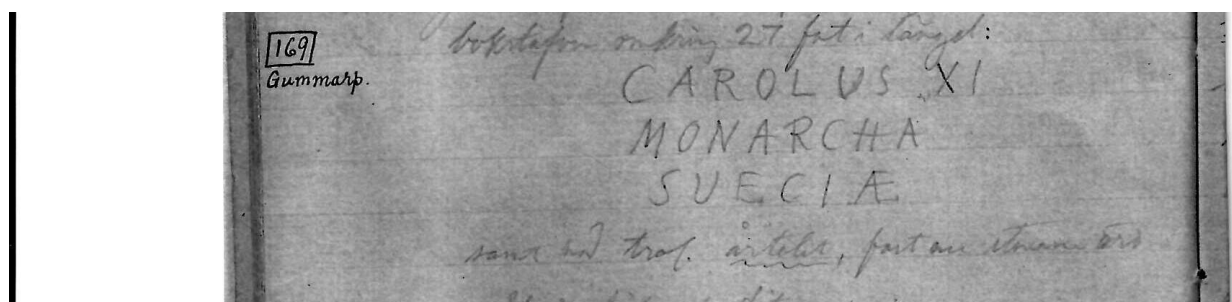 169
Gummarp.
bokstäfver omkring 27 fot i längd:
CAROLUS XI
MONARCHA
SUECIÆ
samt årtalet, fast